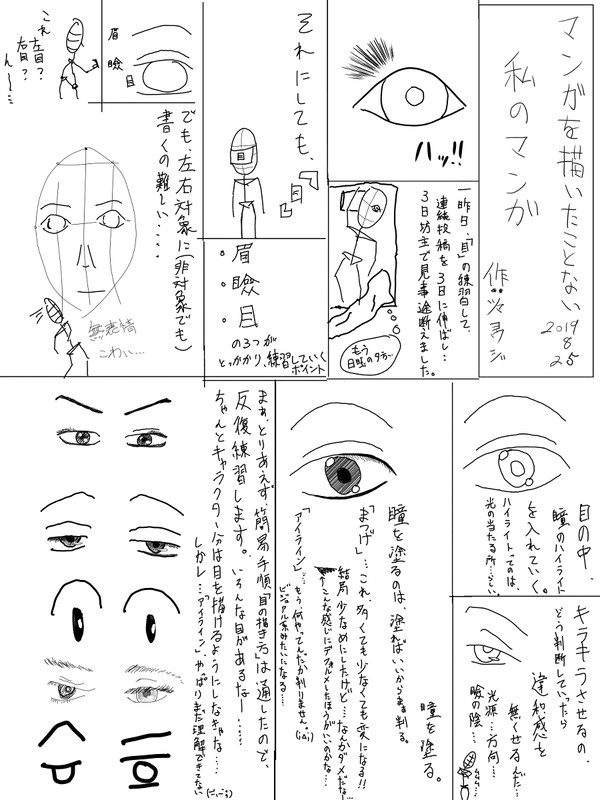 マンガを描いたことない
私のマンガ
作:ツ
2019
8
25
ハッ!!
一昨日、「目」の練習をして、
連続投稿を3日に伸ばし…
3日坊主で見事途断えました。
もう
日曜の夕方…
それにしても、
「目」
目
・眉
・瞼
・目
の3つが
とっかかり、練習していく
ポイント
眉
瞼
目
これ左目?
右目?
ん〜…
でも、左右対象に(非対象でも)
書くの難しい…
無表情
こわい…
目の中、
瞳のハイライト
を入れていく。
ハイライトってのは、
光の当たる所…らしい
キラキラさせるの、
どう判断していたら
違和感を
無くせるんだ…
光源…方向…
瞼の陰…
瞳を塗る。
瞳を塗るのは、塗ればいいからまぁ判る。
「まつげ」…これ、多くても少なくても変になる!!
結局少なめにしたけど…なんかダメだな…
こんな感じにデフォルメしたほうがいいのかな…
「アイライン」…もう何やってんだか判りません。
ビジュアル系みたいになる…
まぁ、とりあえず、簡易手順「目の描き方」は通したので、
反復練習します。いろんな目があるなー……
ちゃんとキャラクター分は目を描けるようにしなきゃな…
しかし…「アイライン」、やっぱりまだ理解できてない